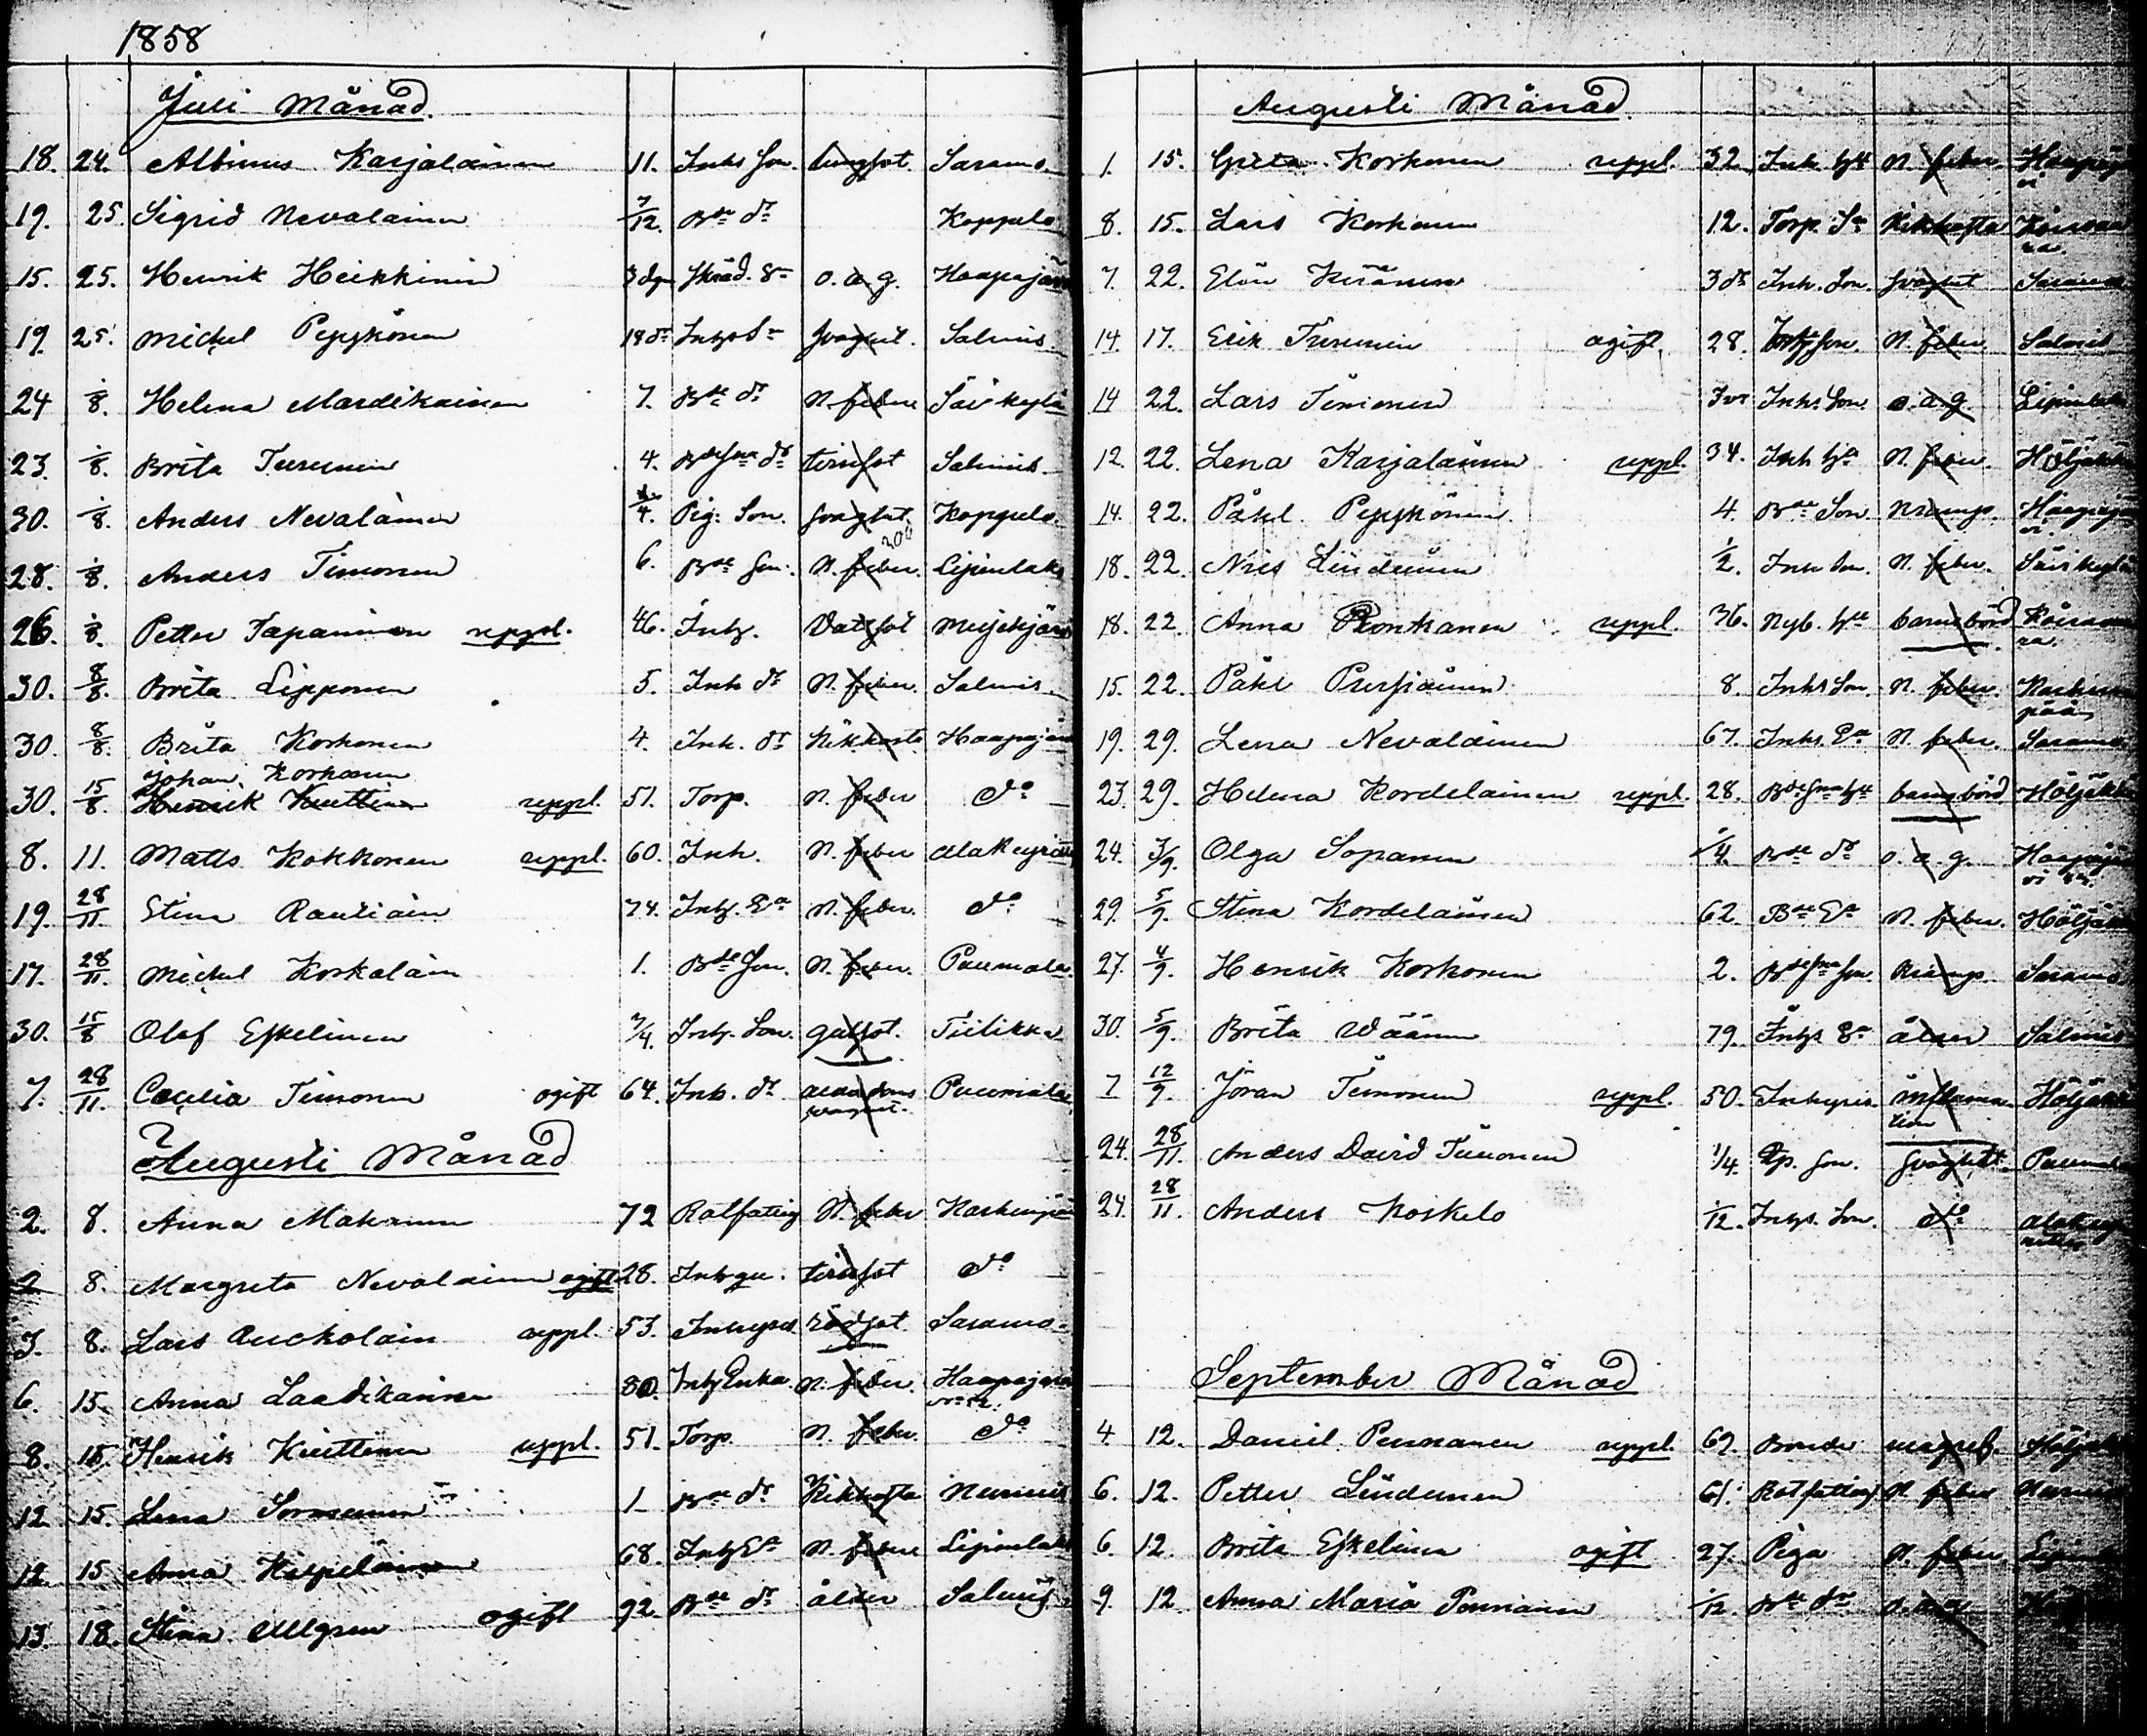 1858
Juli Månad.
18. 24. Albinus Karjalainen 11. Inhs Son. lungsot Saramo.
19. 25. Sigrid Nevalainen 7/12. Bde dr Koppelo
15. 25. Henrik Heikkinen 3 dgr Skräd. Sn o.a.g. Haapajärvi
19. 25. Michel Pyykönen 18 dr Inhys Sn Svaghet. Salmis.
24 1/8. Helena Mardikainen 7. Bde dr N. feber Säi kylä
23. 1/8. Brita Turunen 4. Bdesna dr tvinsot Salmis
30. 1/8. Anders Nevalainen 1/4. Pig. Son. Svaghet. Koppelo.
28. 1/8. Anders Timonen 6. Bde Son. N. feber. Lipinlaks
26. 1/8. Petter Tapaninen uppl. 46. Inhy. Vatsot
30. 8/8. Brita Lipponen 5. Inh dr N. feber. Salmis
30. 8/8. Brita Korhonen 4. Inh. dr Kikhosta Haapajärvi
Johan Korhonen
30. 15/8 Henrik Kuittinen uppl. 51. Torp. N. feber do
8. 11. Matts Kokkonen uppl. 60. Inh. N. feber alakeyritti
19. 28/11. Stina Rautiain 74. Inhy. Ea N. feber. do
17. 28/11. Michel Koskelain 1. Bde Son. N. feber. Puumala
30. 15/8 Olof Eskelinen 3/4. Inhy. Son. gulsot. Tiilikka
7. 28/11. Cecilia Timonen ogift 64. Inh. dr ålderdoms svaghet. Puumala
Augusti Månad
2. 8. Anna Makinen 72 Rotfattig N. feber
2 8. Margreta Nevalainen ogift 28. tvinsot do
3. 8. Lars Auckolain uppl. 53. Inhyses rödsot Saramo
6. 15. Anna Laadikainen 80. Inhy Enka N. feber. Haapajärvi
8. 15. Henrik Kuittinen uppl. 51. Torp. N. feber. do
12 15. Lena Sormunen 1 Bde dr Kikhosta Nurmis
12. 15 Anna 68. Inhy Ea N. feber Lipinlaks
13. 18. Stina Ullgren ogift 92. Bde dr ålder Salmis
Augusti Månad
1. 15. Greta Korhonen uppl. 32. Inh. hu N. feber. Haapajärvi
8. 15. Lars Korhonen 12. Torp. Sn Kikhosta Koirava ra.
7. 22. Elin Kiränen 3 dr Inh. Son. Svaghet Saramo
14 17. Erik Turunen ogift. 28. N. feber. Salmis
14 22. Lars Timonen 3 Inhs Son. o.a.g. Lipinlaks
12. 22. Lena Karjalainen uppl. 34. Inh hu N. feber. Höljäkkä
14. 22. Påhl Pyykönen. 4. Bde Son. Kramp. Haapajärvi
18. 22. Nils Lindunen 1/2. Inh Son. N. feber. Säi kylä
18. 22. Anna Ronkanen uppl. 36. Nyb. hu barnsbörd Koirava ra.
15. 22. Påhl Pursiainen 8. Inhs Son. N. feber.
19. 29. Lena Nevalainen 67. Inhs Ea N. feber. Saramo
23. 29. Helena Kordelainen uppl. 28. Bdesna hu barnsbörd Höljäkkä
24. 3/9. Olga Sopanen 1/4. Bde dr o.a.g. Haapajärvi
29. 5/9. Stina Kordelainen 62. Bde Ea N. feber. Höljäkkä
27. 4/9. Henrik Korhonen 2. Bdesna Son Kramp. Saramo
30. 5/9. Brita Wäänen 79. Inhys Ea ålder Salmis
7 12/9. Jöran Timonen uppl. 50. Inhysis inflamation Höljäkkä
24. 28/11. Anders David Timonen 1/4. Tp. Son. Svaghet. Puumala
24. 28/11. Anders Koskelo 1/12. Inhys. Son. do alakeyritti
September Månad
4. 12. Daniel Pennanen uppl. 69. Bonde magref. Höljäkkä
6. 12. Petter Lindunen 61. Rotfattig N. feber Nurmis
6. 12. Brita Eskelinen ogift 27. Piga N. feber Lipinlaks
9. 12. Anna Maria Pennanen 1/12. Bde dr o.a.g.